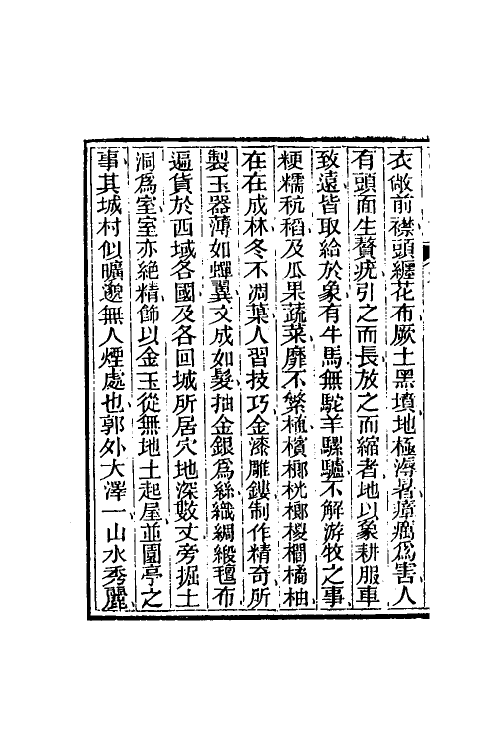 衣敞前襟頭纏花布厥土黑墳地極溽暑瘴癘爲害人
有頭面生贅疣引之而長放之而縮者地以象耕服車
致遠皆取給於象有牛馬無駝羊騾驢不解游牧之事
粳糯秔稻及瓜果蔬菜靡不繁植檳榔桄榔椶櫚橘柚
在在成林冬不凋葉人習技巧金漆雕鏤制作精奇所
製玉器薄如蟬翼文成如髮抽金銀爲絲織綢緞氊布
遍貨於西域各國及各回城所居穴地深數丈旁掘土
洞爲室室亦絶精飾以金玉從無地土起屋並園亭之
事其城村似曠邈無人煙處也郭外大澤一山水秀麗